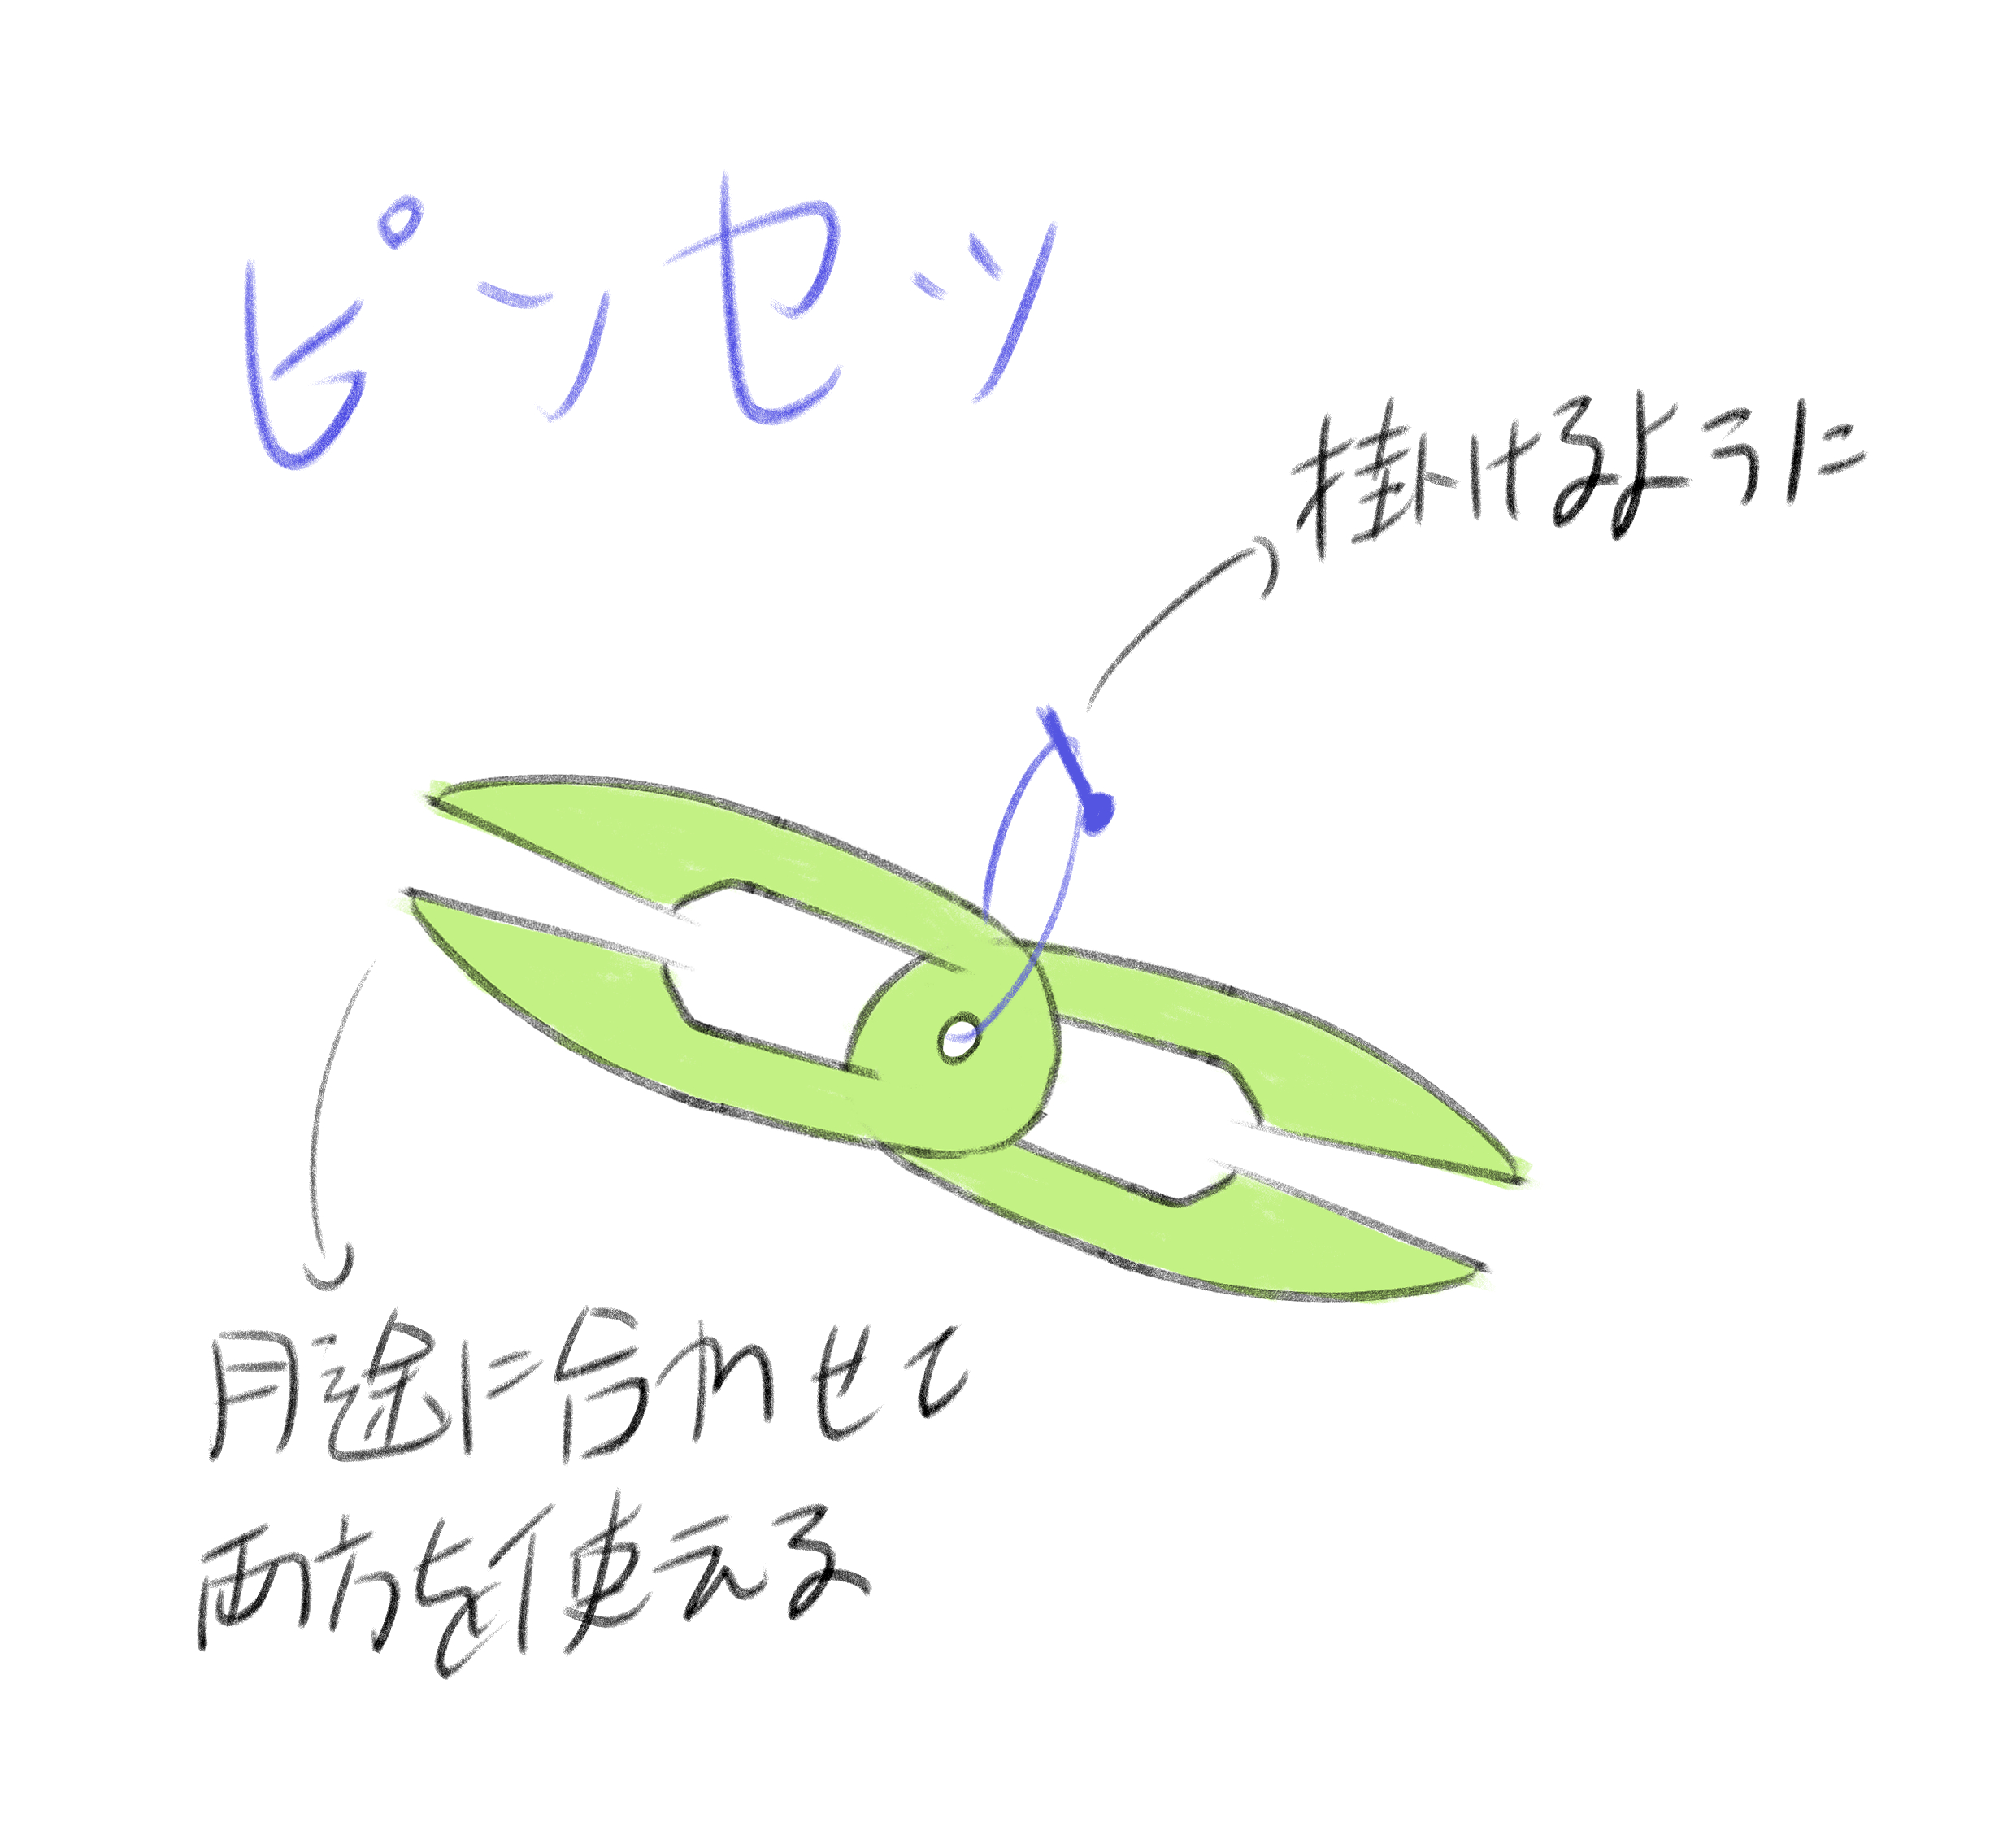 ピンセツ
掛けるように
用途に合わせて
両方を使える